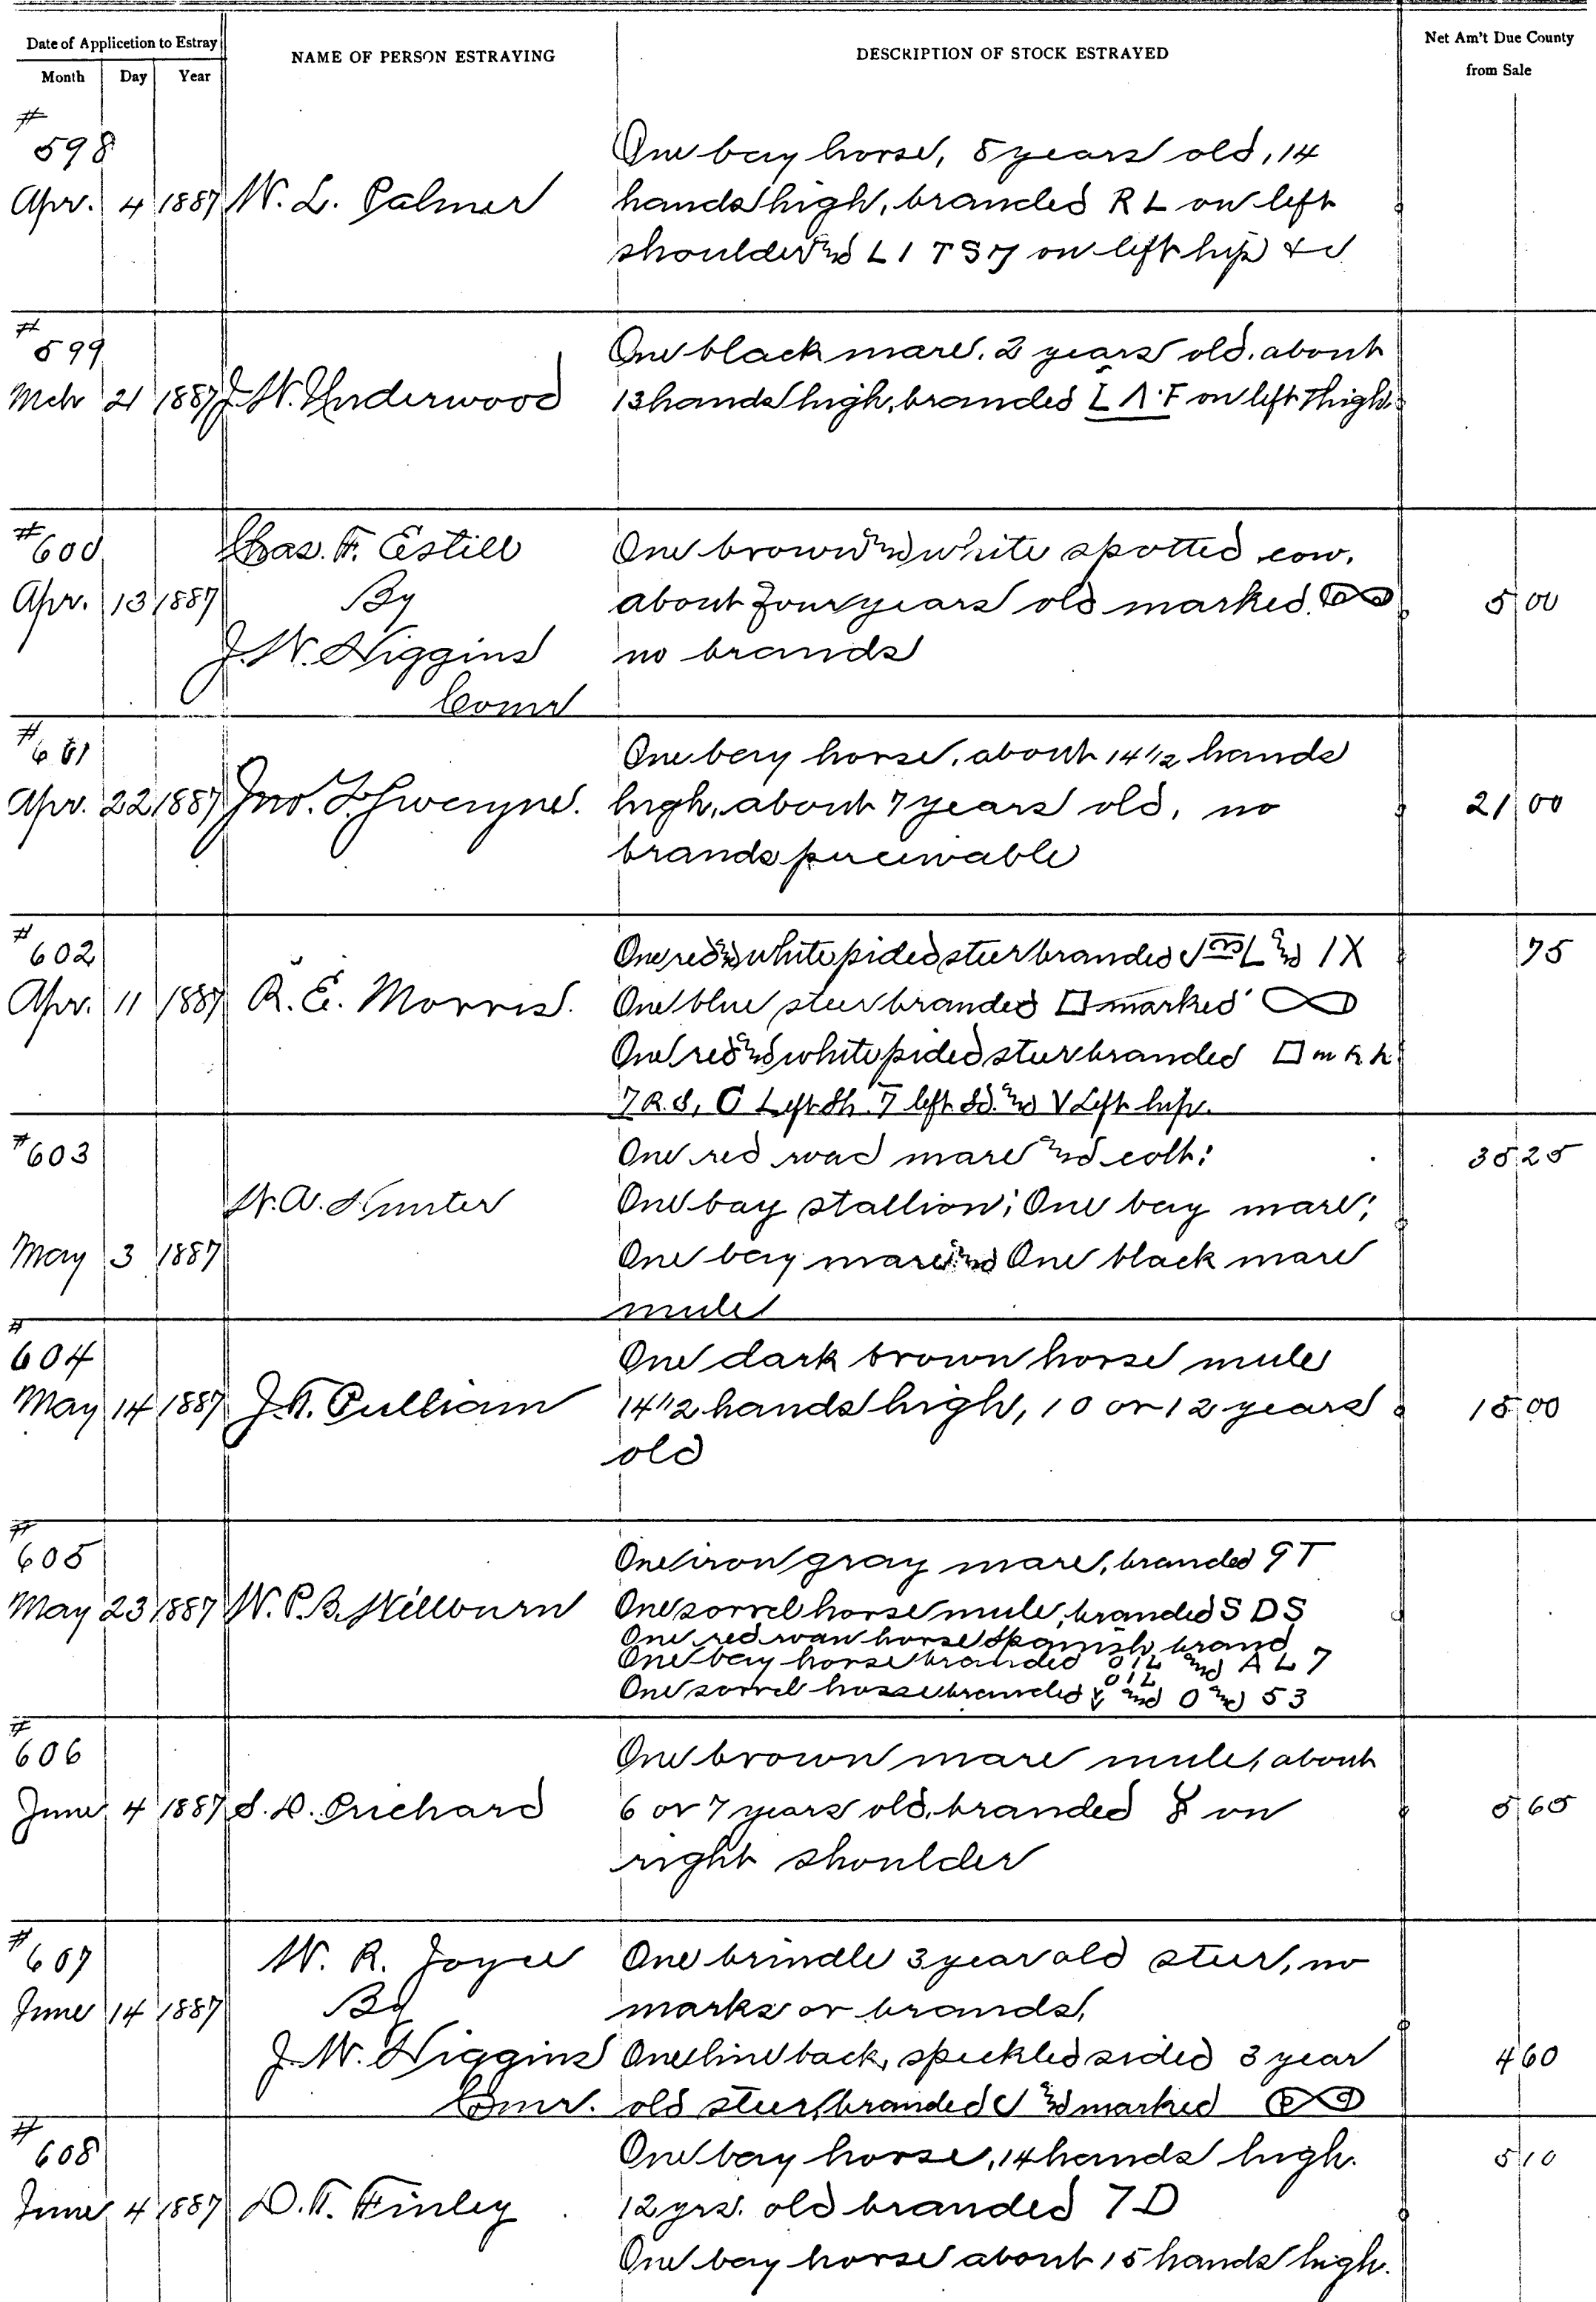 Date of Applicetion to Estray
Month Day Year
NAME OF PERSON ESTRAYING
DESCRIPTION OF STOCK ESTRAYED
Net Am't Due County
from Sale
# 598
Apr. 4 1887 W. L. Palmer
One bay horse, 8 years old, 14
hands high, branded R L on left
shoulder and L I T S on left hip &c
# 599
Mch 21 1887 J. W. Underwood
One black mare, 2 years old, about
13 hands high, branded on left Thigh.
# 600
Apr. 13 1887
Chas. F. Estill
By
J. W. Higgins
Comr
One brown and white spotted cow,
about four years old marked
no brands
5 00
# 601
Apr. 22 1887 Jno.
One bay horse, about 14 1/2 hands
high, about 7 years old, no
brands perceivable
21 00
# 602
Apr. 11 1887 R. E. Morris.
One red and white pided steer branded L and I X
One blue steer branded marked
One red and white pided steer branded
7 R. S, C Left Sh. 7 left Sd. and V Left hip.
75
# 603
May 3 1887
W. A. Hunter
One red road mare and colt;
One bay stallion; One bay mare;
One bay mare and One black mare
mule
35 25
# 604
May 14 1887 J. T. Pulliam
One dark brown horse mule
14 1/2 hands high, 10 or 12 years
old
15 00
# 605
May 23 1887 W. P. B. Millburn
One iron gray mare, branded 9 T
One sorrel horse mule, branded S D S
One red roan horse Spanish brand
One bay horse branded O I L and A L 7
One sorrel horse branded O I L and O and 53
# 606
June 4 1887 S. D. Prichard
One brown mare mule, about
6 or 7 years old, branded on
right shoulder
5 65
# 607
June 14 1887
W. R. Joyce
By
J. W. Higgins
Comr.
One brindle 3 year old steer, no
marks or brands,
One line back, speckled sided 3 year
old steer, branded and marked
4 60
# 608
June 4 1887 D. T. Finley
One bay horse, 14 hands high.
12 yrs. old branded 7 D
One bay horse about 15 hands high.
5 10